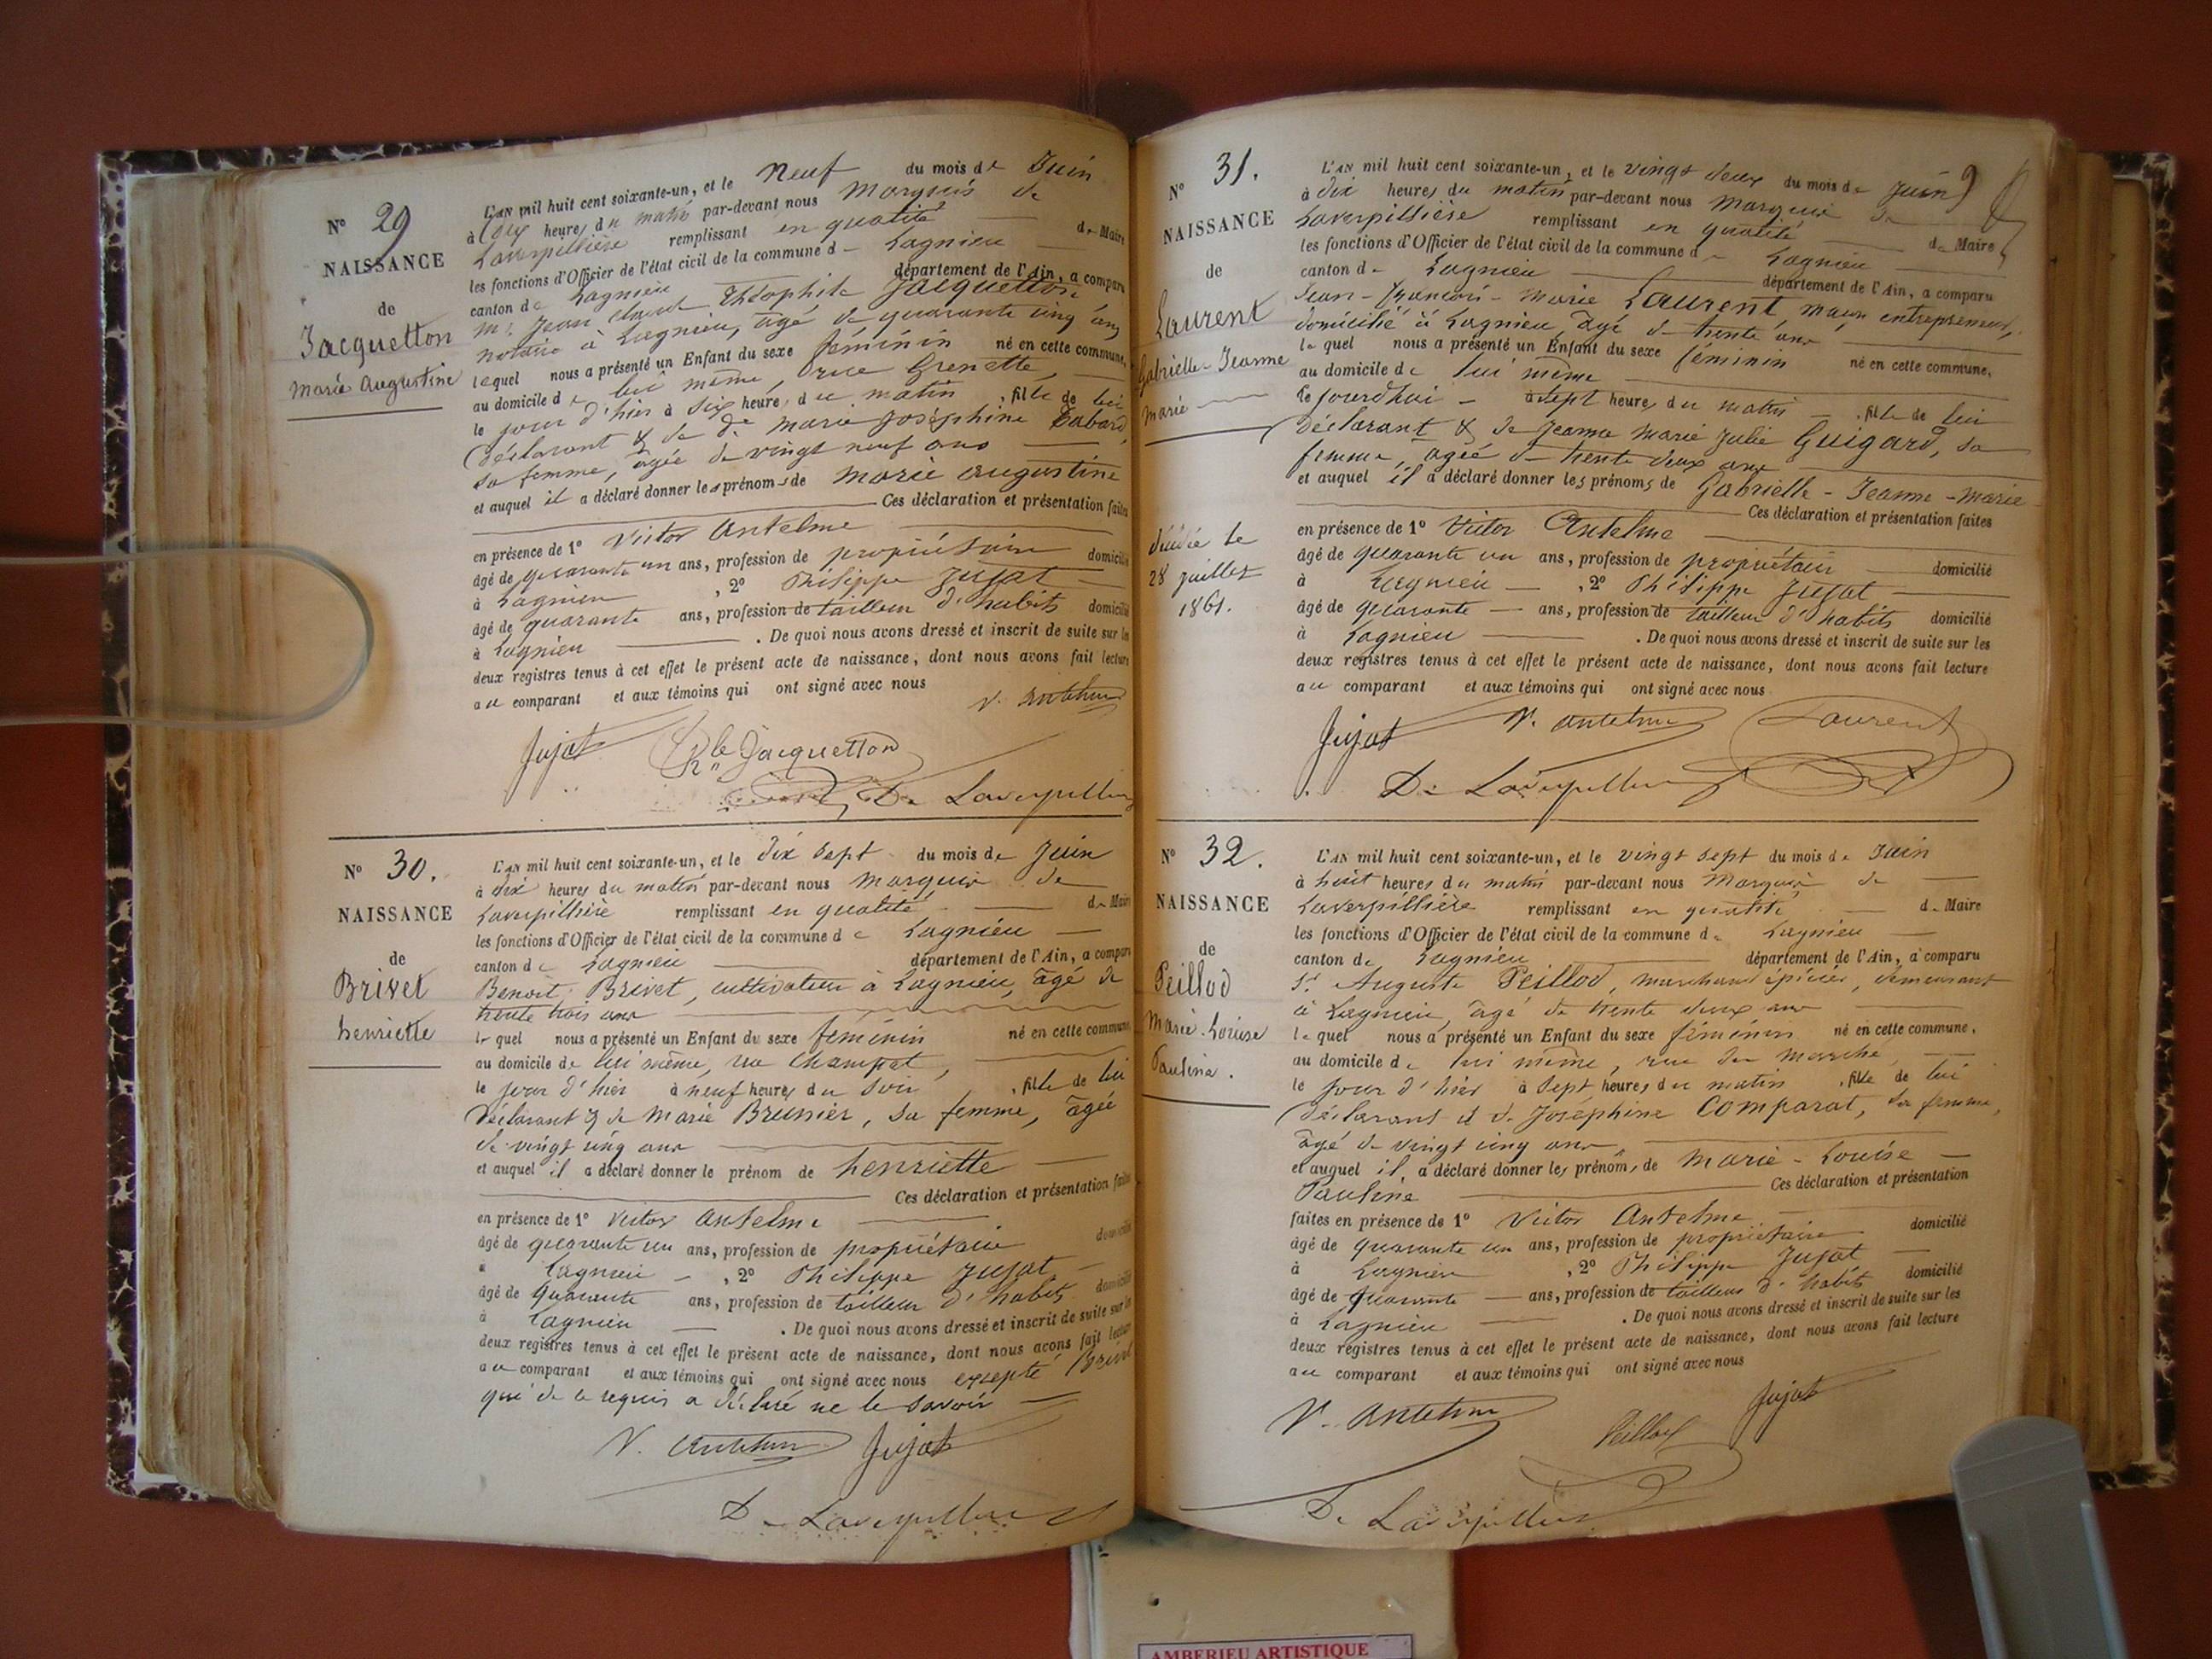 Nº 29
NAISSANCE
de
Jacquetton
Marie Augustine
L'AN mil huit cent soixante-un, et le neuf du mois de Juin
à dix heures du matin par-devant nous Marquis de
Laverpillière remplissant en qualité de Maire
les fonctions d'Officier de l'état civil de la commune de Lagnieu
canton de Lagnieu département de l'Ain, a comparu
Mr. Jean Claude Théophile Jacquetton
notaire à Lagnieu, âgé de quarante cinq ans
lequel nous a présenté un Enfant du sexe féminin né en cette commune,
au domicile de lui même, rue Grenette,
le jour d'hier à six heures du matin, fille de lui
déclarant & de de Marie Joséphine Cabard,
sa femme, âgée de vingt neuf ans
et auquel il a déclaré donner les prénoms de Marie Augustine
Ces déclaration et présentation faites
en présence de 1º Victor Antelme
âgé de quarante un ans, profession de propriétaire domicilié
à Lagnieu, 2º Philippe Jujat
âgé de quarante ans, profession de tailleur d'habits domicilié
à Lagnieu. De quoi nous avons dressé et inscrit de suite sur les
deux registres tenus à cet effet le présent acte de naissance, dont nous avons fait lecture
au comparant et aux témoins qui ont signé avec nous
V. Antelme
Jujat Jacquetton
De Laverpillière
Nº 30.
NAISSANCE
de
Brivet
henriette
L'AN mil huit cent soixante-un, et le dix sept du mois de Juin
à dix heures du matin par-devant nous Marquis de
Laverpillière remplissant en qualité de Maire
les fonctions d'Officier de l'état civil de la commune de Lagnieu
canton de Lagnieu département de l'Ain, a comparu
Benoit Brivet, cultivateur à Lagnieu, âgé de
trente trois ans
lequel nous a présenté un Enfant du sexe féminin né en cette commune,
au domicile de lui même, rue Champat,
le jour d'hier à neuf heures du soir, fille de lui
déclarant & de Marie Brunier, sa femme, âgée
de vingt cinq ans
et auquel il a déclaré donner le prénom de henriette
Ces déclaration et présentation faites
en présence de 1º Victor Antelme
âgé de quarante un ans, profession de propriétaire domicilié
à Lagnieu, 2º Philippe Jujat
âgé de quarante ans, profession de tailleur d'habits domicilié
à Lagnieu. De quoi nous avons dressé et inscrit de suite sur les
deux registres tenus à cet effet le présent acte de naissance, dont nous avons fait lecture
au comparant et aux témoins qui ont signé avec nous excepté Brivet
qui de ce requis a déclaré ne le savoir
V. Antelme Jujat
De Laverpillière
Nº 31.
NAISSANCE
de
Laurent
Gabrielle-Jeanne
Marie
décédée le
28 juillet
1861.
L'AN mil huit cent soixante-un, et le vingt deux du mois de Juin
à dix heures du matin par-devant nous Marquis de
Laverpillière remplissant en qualité de Maire
les fonctions d'Officier de l'état civil de la commune de Lagnieu
canton de Lagnieu département de l'Ain, a comparu
Jean-François-Marie Laurent, maçon entrepreneur,
domicilié à Lagnieu, âgé de trente ans
lequel nous a présenté un Enfant du sexe féminin né en cette commune,
au domicile de lui même
le jourdhui à sept heures du matin, fille de lui
déclarant & de Jeanne Marie Julie Guigard, sa
femme, agée de trente deux ans
et auquel il a déclaré donner les prénoms de Gabrielle-Jeanne-Marie
Ces déclaration et présentation faites
en présence de 1º Victor Antelme
âgé de quarante un ans, profession de propriétaire domicilié
à Lagnieu, 2º Philippe Jujat
âgé de quarante ans, profession de tailleur d'habits domicilié
à Lagnieu. De quoi nous avons dressé et inscrit de suite sur les
deux registres tenus à cet effet le présent acte de naissance, dont nous avons fait lecture
au comparant et aux témoins qui ont signé avec nous
Jujat V. Antelme Laurent
De Laverpillière
Nº 32.
NAISSANCE
de
Peillod
Marie-Louise
Pauline.
L'AN mil huit cent soixante-un, et le vingt sept du mois de Juin
à huit heures du matin par-devant nous Marquis de
Laverpillière remplissant en qualité de Maire
les fonctions d'Officier de l'état civil de la commune de Lagnieu
canton de Lagnieu département de l'Ain, a comparu
Sr. Auguste Peillod, marchand épicier, demeurant
à Lagnieu, âgé de trente deux ans
lequel nous a présenté un Enfant du sexe féminin né en cette commune,
au domicile de lui même, rue du marche,
le jour d'hier à sept heures du matin, fille de lui
déclarant et de Joséphine Comparat, sa femme,
âgé de vingt cinq ans
et auquel il a déclaré donner les prénoms de Marie-Louise
Pauline Ces déclaration et présentation
faites en présence de 1º Victor Antelme
âgé de quarante un ans, profession de propriétaire domicilié
à Lagnieu, 2º Philippe Jujat
âgé de quarante ans, profession de tailleur d'habits domicilié
à Lagnieu. De quoi nous avons dressé et inscrit de suite sur les
deux registres tenus à cet effet le présent acte de naissance, dont nous avons fait lecture
au comparant et aux témoins qui ont signé avec nous
V. Antelme Peillod Jujat
De Laverpillière
AMBERIEU ARTISTIQUE